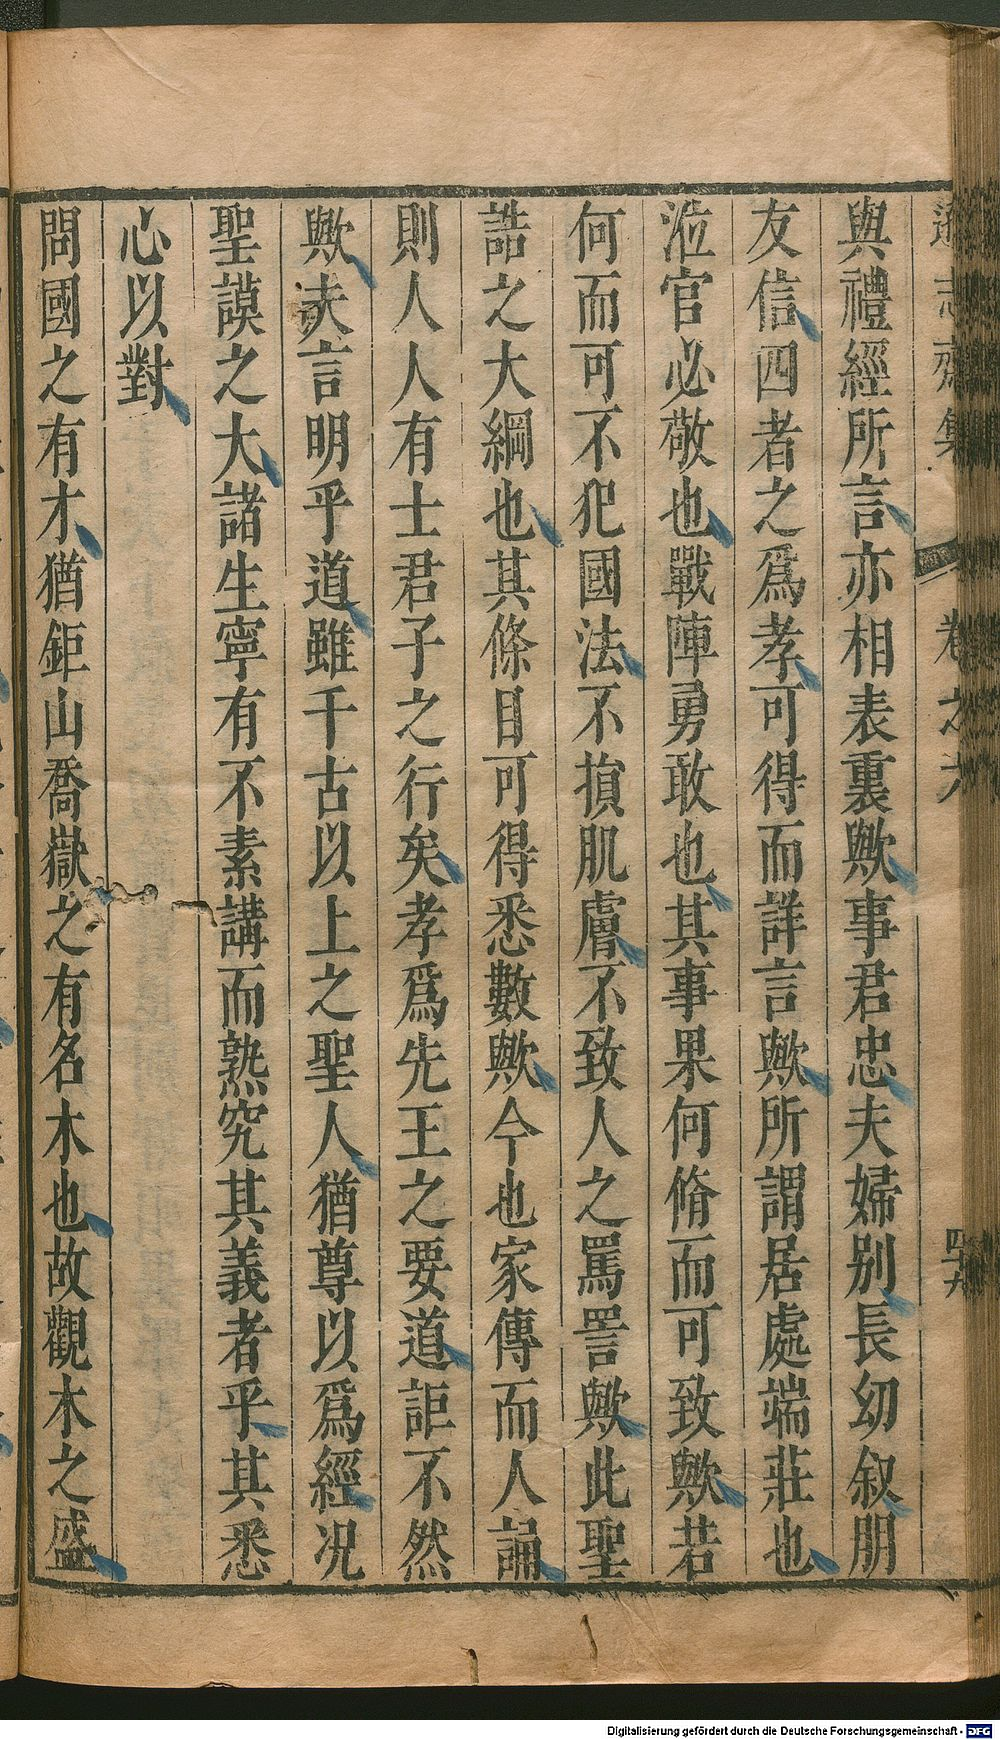 遜志齋集　卷之六　四十九
與禮經所言亦相表裏歟事君忠夫婦別長幼叙朋
友信四者之爲孝可得而詳言歟所謂居處端莊也
涖官必敬也戰陣勇敢也其事果何脩而可致歟若
何而可不犯國法不損肌膚不致人之罵詈歟此聖
誥之大綱也其條目可得悉數歟今也家傳而人誦
則人人有士君子之行矣孝爲先王之要道詎不然
歟夫言明乎道雖千古以上之聖人猶尊以爲經况
聖謨之大諸生寧有不素講而熟究其義者乎其悉
心以對
問國之有才猶鉅山喬嶽之有名木也故觀木之盛
Digitalisierung gefördert durch die Deutsche Forschungsgemeinschaft - DFG